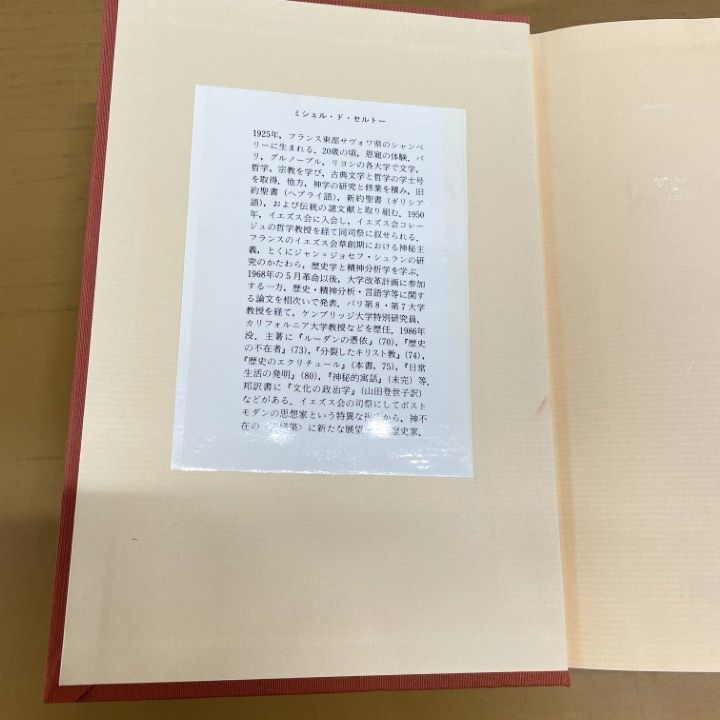 ミシェル・ド・セルトー
1925年，フランス東部サヴォワ県のシャンベ
リーに生まれる．20歳の頃，恩寵の体験．パ
リ，グルノーブル，リヨンの各大学で文学，
哲学，宗教を学び，古典文学と哲学の学士号
を取得．他方，神学の研究と修業を積み，旧
約聖書（ヘブライ語），新約聖書（ギリシア
語），および伝統の諸文献と取り組む．1950
年，イエズス会に入会し，イエズス会コレー
ジュの哲学教授を経て同司祭に叙せられる．
フランスのイエズス会草創期における神秘主
義，とくにジャン＝ジョセフ・シュランの研
究のかたわら，歴史学と精神分析学を学ぶ．
1968年の5月革命以後，大学改革計画に参加
する一方，歴史・精神分析・言語学等に関す
る論文を相次いで発表．パリ第8・第7大学
教授を経て，ケンブリッジ大学特別研究員，
カリフォルニア大学教授などを歴任．1986年
没．主著に『ルーダンの憑依』(70)，『歴史
の不在者』(73)，『分裂したキリスト教』(74)，
『歴史のエクリチュール』(本書，75)，『日常
生活の発明』(80)，『神秘的寓話』(未完)等，
邦訳書に『文化の政治学』(山田登世子訳)
などがある．イエズス会の司祭にしてポスト
モダンの思想家という特異な視点から，神不
在の〈 構築〉に新たな展望 歴史家．